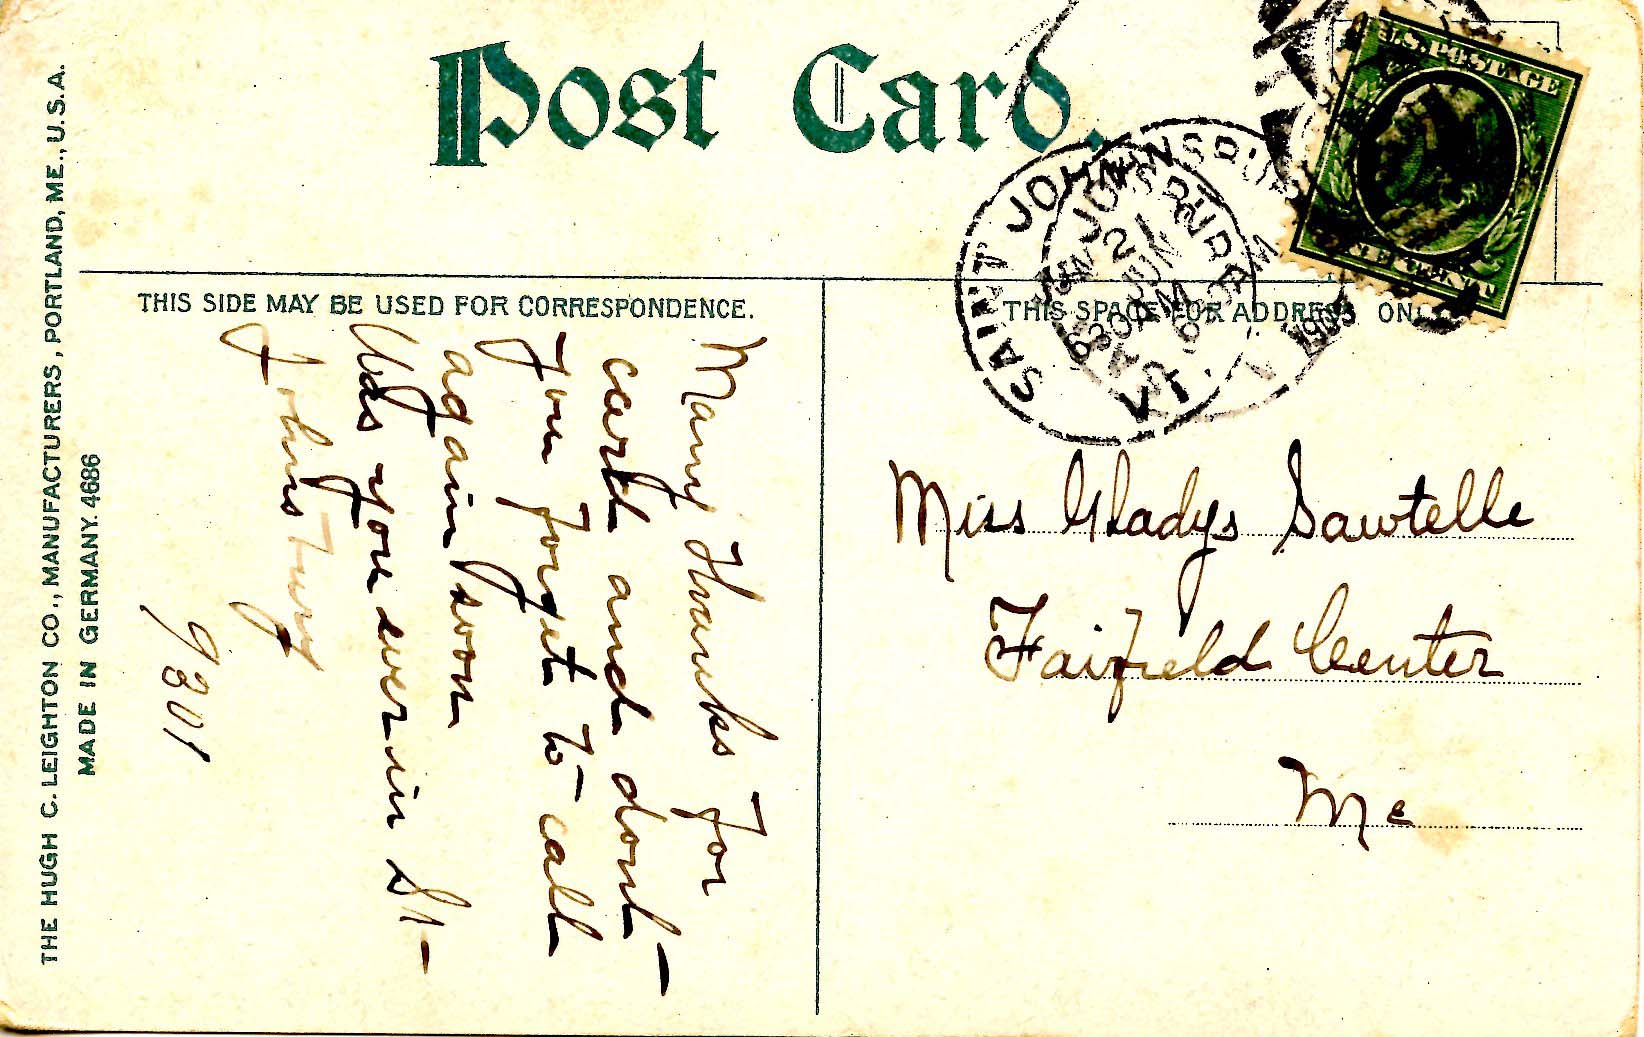 Post Card.
U.S. POSTAGE
SAINT JOHNSBURY
JUN
21
630 AM
VT.
THIS SIDE MAY BE USED FOR CORRESPONDENCE.
THIS SPACE FOR ADDRESS ONLY
Many Thanks for
card and dont
you forget to call
again soon
Was you ever in St
Johnsbury
9801
Miss Gladys Sawtelle
Fairfield Center
Me
THE HUGH C. LEIGHTON CO., MANUFACTURERS, PORTLAND, ME., U.S.A.
MADE IN GERMANY. 4686